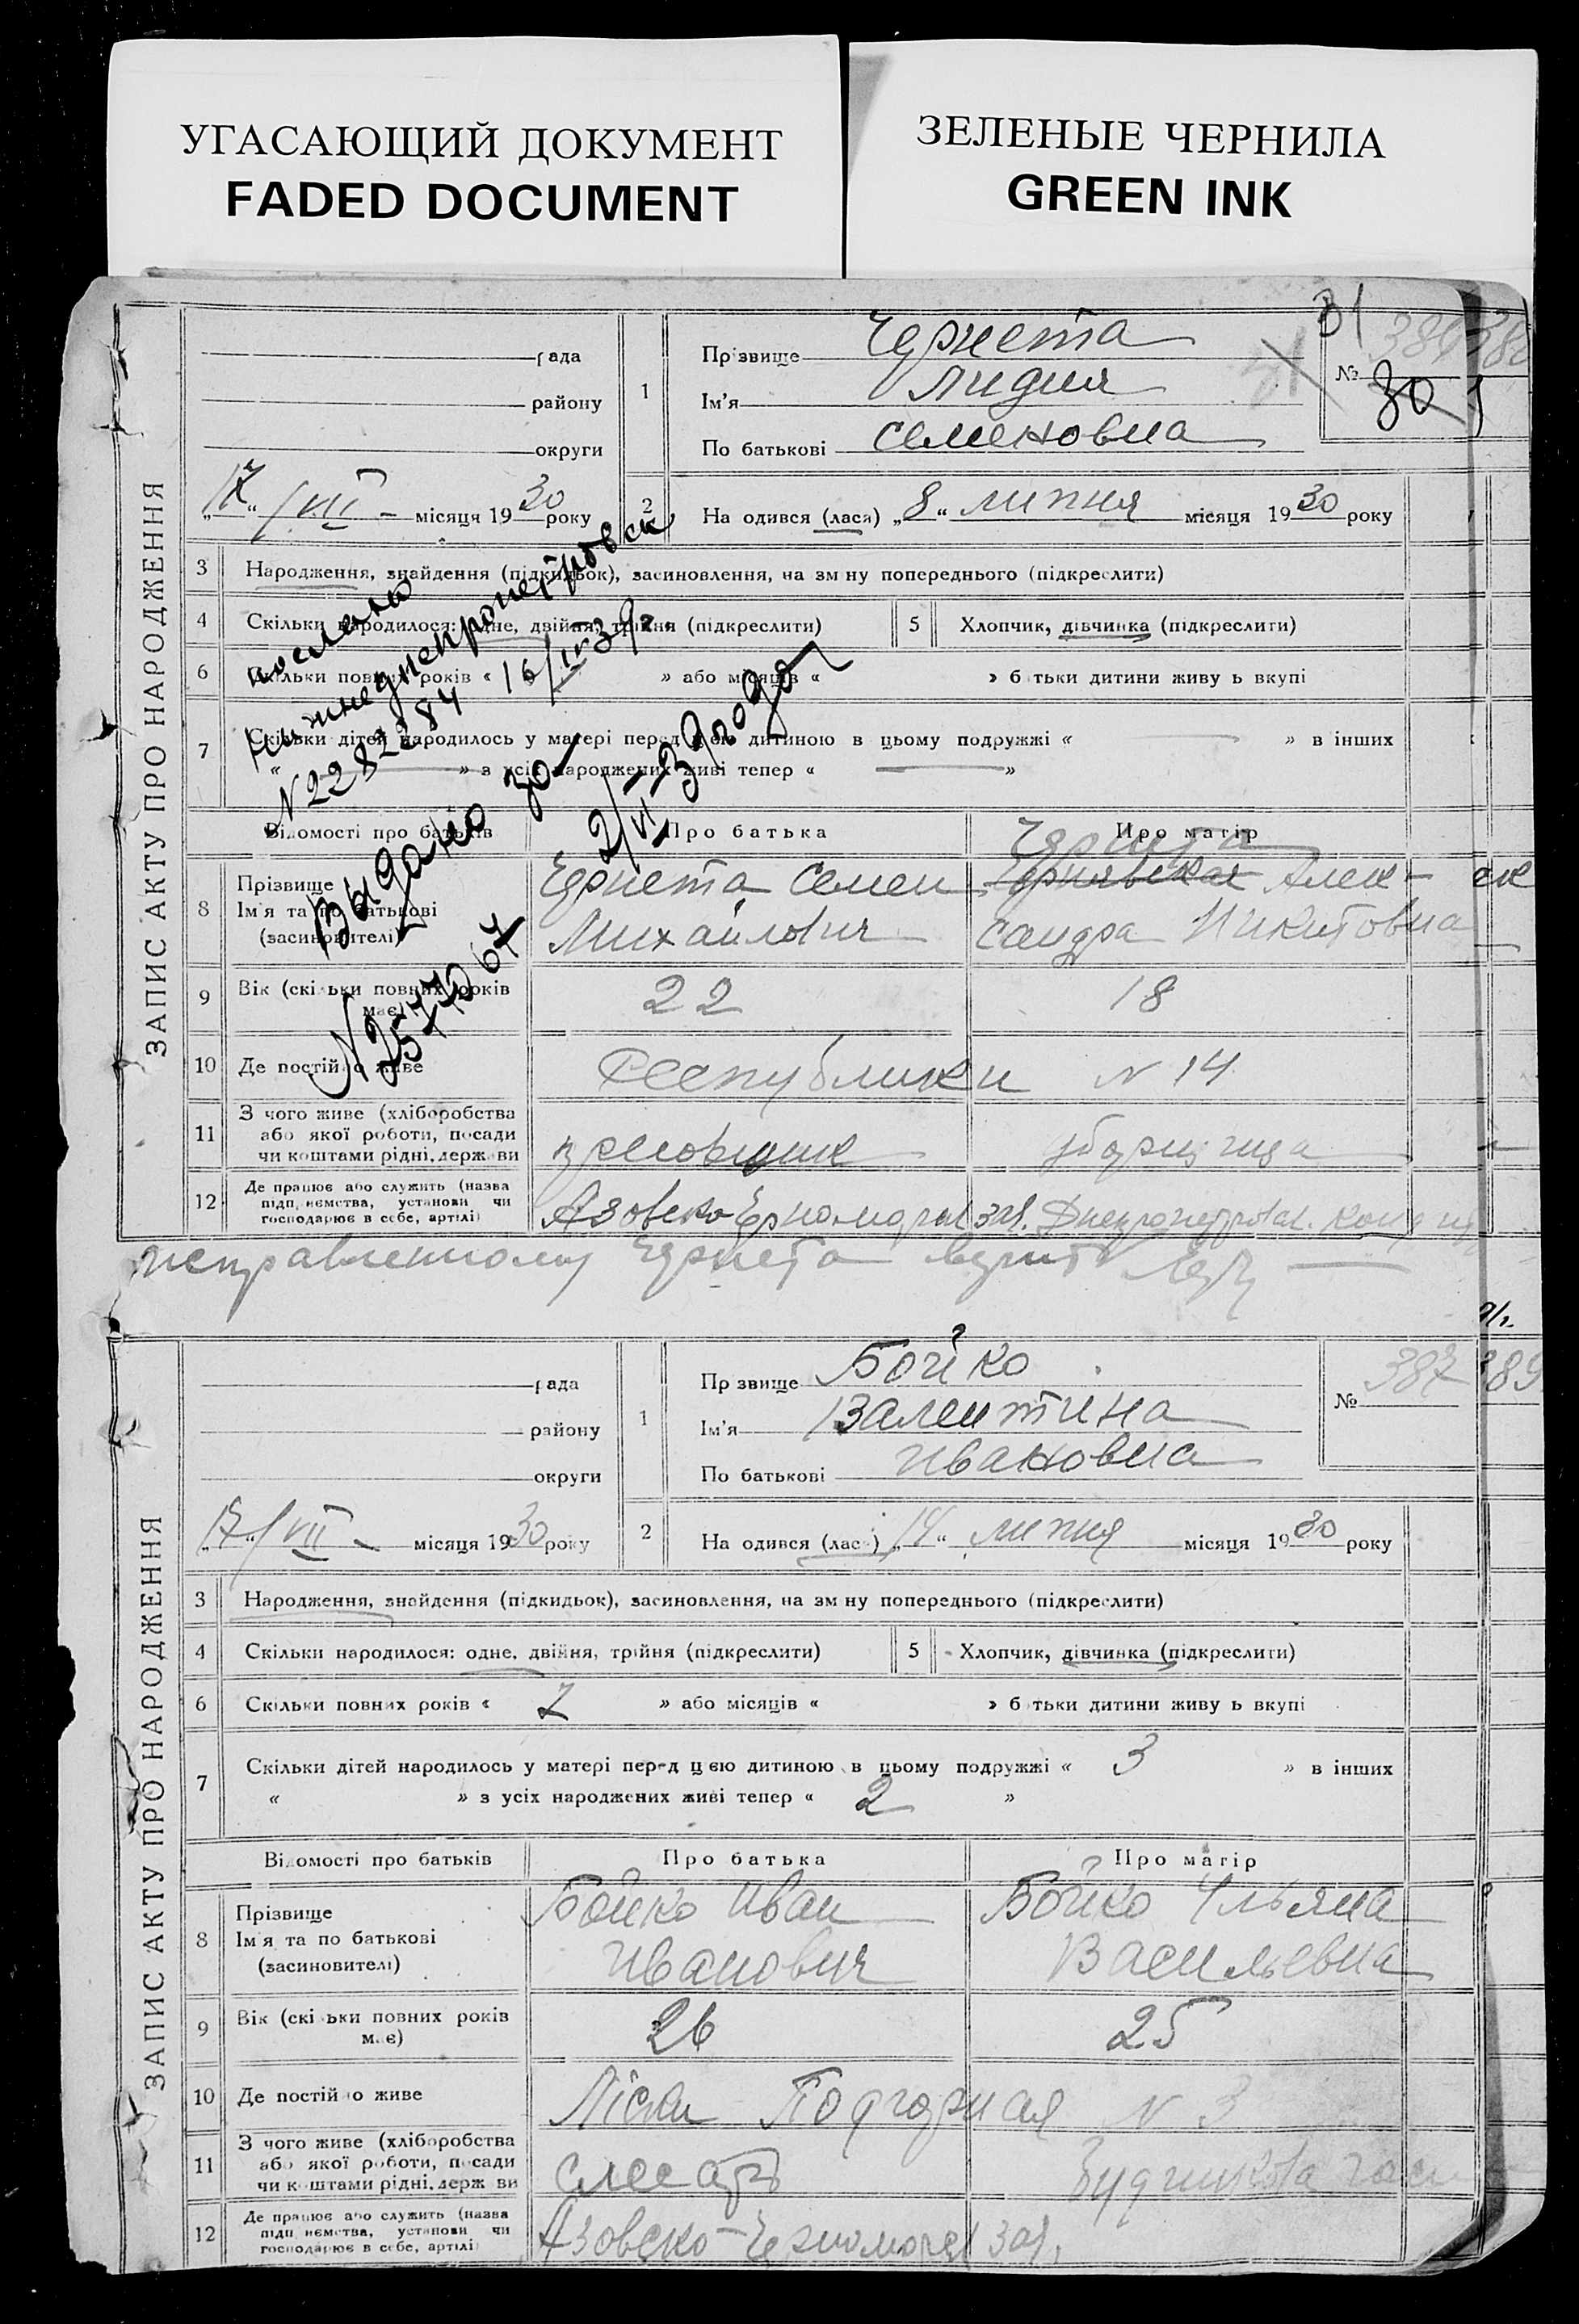 УГАСАЮЩИЙ ДОКУМЕНТ
FADED DOCUMENT
ЗЕЛЕНЫЕ ЧЕРНИЛА
GREEN INK
ЗАПИС АКТУ ПРО НАРОДЖЕННЯ
рада
району
округи
„17“ /VII – місяця 1930 року
1
Прізвище Чернета
Ім'я Лидия
По батькові Семеновна
31
№ 30
2
На одився (лася) „8“ липня місяця 1930 року
3 Народження, знайдення (підкидьок), засиновлення, на зм ну попереднього (підкреслити)
4 Скільки народилося: одне, двійня, трійня (підкреслити)
5 Хлопчик, дівчинка (підкреслити)
6 Скільки повних років « » або місяців « » б тьки дитини живу ь вкупі
7 Скільки дітей народилось у матері перед цією дитиною в цьому подружжі « » в інших
« » з усіх народжених живі тепер « »
послано
Нижнеднепропетровск
N 2282384 16/IV 39 г.
Выдано
2/VI–39 года
N 2577067
Відомості про батьків
Про батька
Про матір
8 Прізвище
Ім'я та по батькові
(засиновителі)
Чернета Семен
Михайлович
Чернета
Чернявская Алек-
сандра Никитовна
9 Вік (скі ьки повних років має)
22
18
10 Де постій о живе
Республики N 14
11 З чого живе (хліборобства
або якої роботи, посади
чи коштами рідні, держ ви
уборщица
12 Де працює або служить (назва
підп иємства, установи чи
господарює в себе, артілі)
Азовско-Черноморск зал.
исправленному Чернета верить
ЗАПИС АКТУ ПРО НАРОДЖЕННЯ
рада
району
округи
„17“ /VII – місяця 1930 року
1
Пр звище Бойко
Ім'я Валентина
По батькові Ивановна
№ 387
389
2
На одився (лася) „14“ липня місяця 1930 року
3 Народження, знайдення (підкидьок), засиновлення, на зм ну попереднього (підкреслити)
4 Скільки народилося: одне, двійня, трійня (підкреслити)
5 Хлопчик, дівчинка (підкреслити)
6 Скільки повних років « 7 » або місяців « » б тьки дитини живу ь вкупі
7 Скільки дітей народилось у матері перед цією дитиною в цьому подружжі « 3 » в інших
« » з усіх народжених живі тепер « 2 »
Відомості про батьків
Про батька
Про матір
8 Прізвище
Ім'я та по батькові
(засиновителі)
Бойко Иван
Иванович
Бойко Ульяна
Васильевна
9 Вік (скі ьки повних років м є)
26
25
10 Де постій о живе
Піски Подгорная N 3
11 З чого живе (хліборобства
або якої роботи, посади
чи к штами рідні, держ ви
слесарь
12 Де працює або служить (назва
підп иємства, установи чи
господарює в себе, артілі)
Азовско-Черноморск зал.